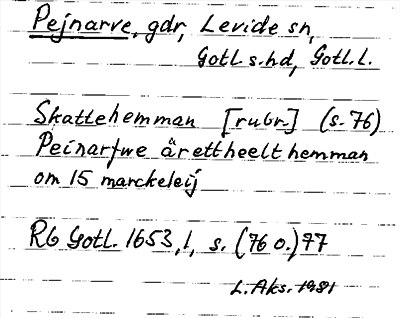 Pejnarve, gdr, Levide sn,
Gotl s. hd, Gotl. l.
Skattehemman [rubr.] (s. 76)
Peinarfwe är ett heelt hemman
om 15 marckeleij
Rb Gotl. 1653, 1, s. (76 o.) 77
L. Aks. 1981